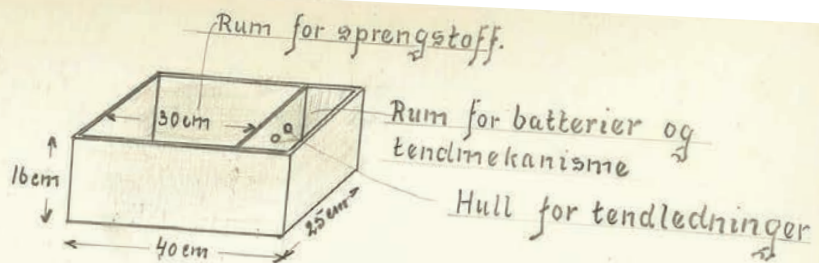 Rum for sprengstoff.
30cm
Rum for batterier og
tendmekanisme
16cm
Hull for tendledninger
25cm
40cm